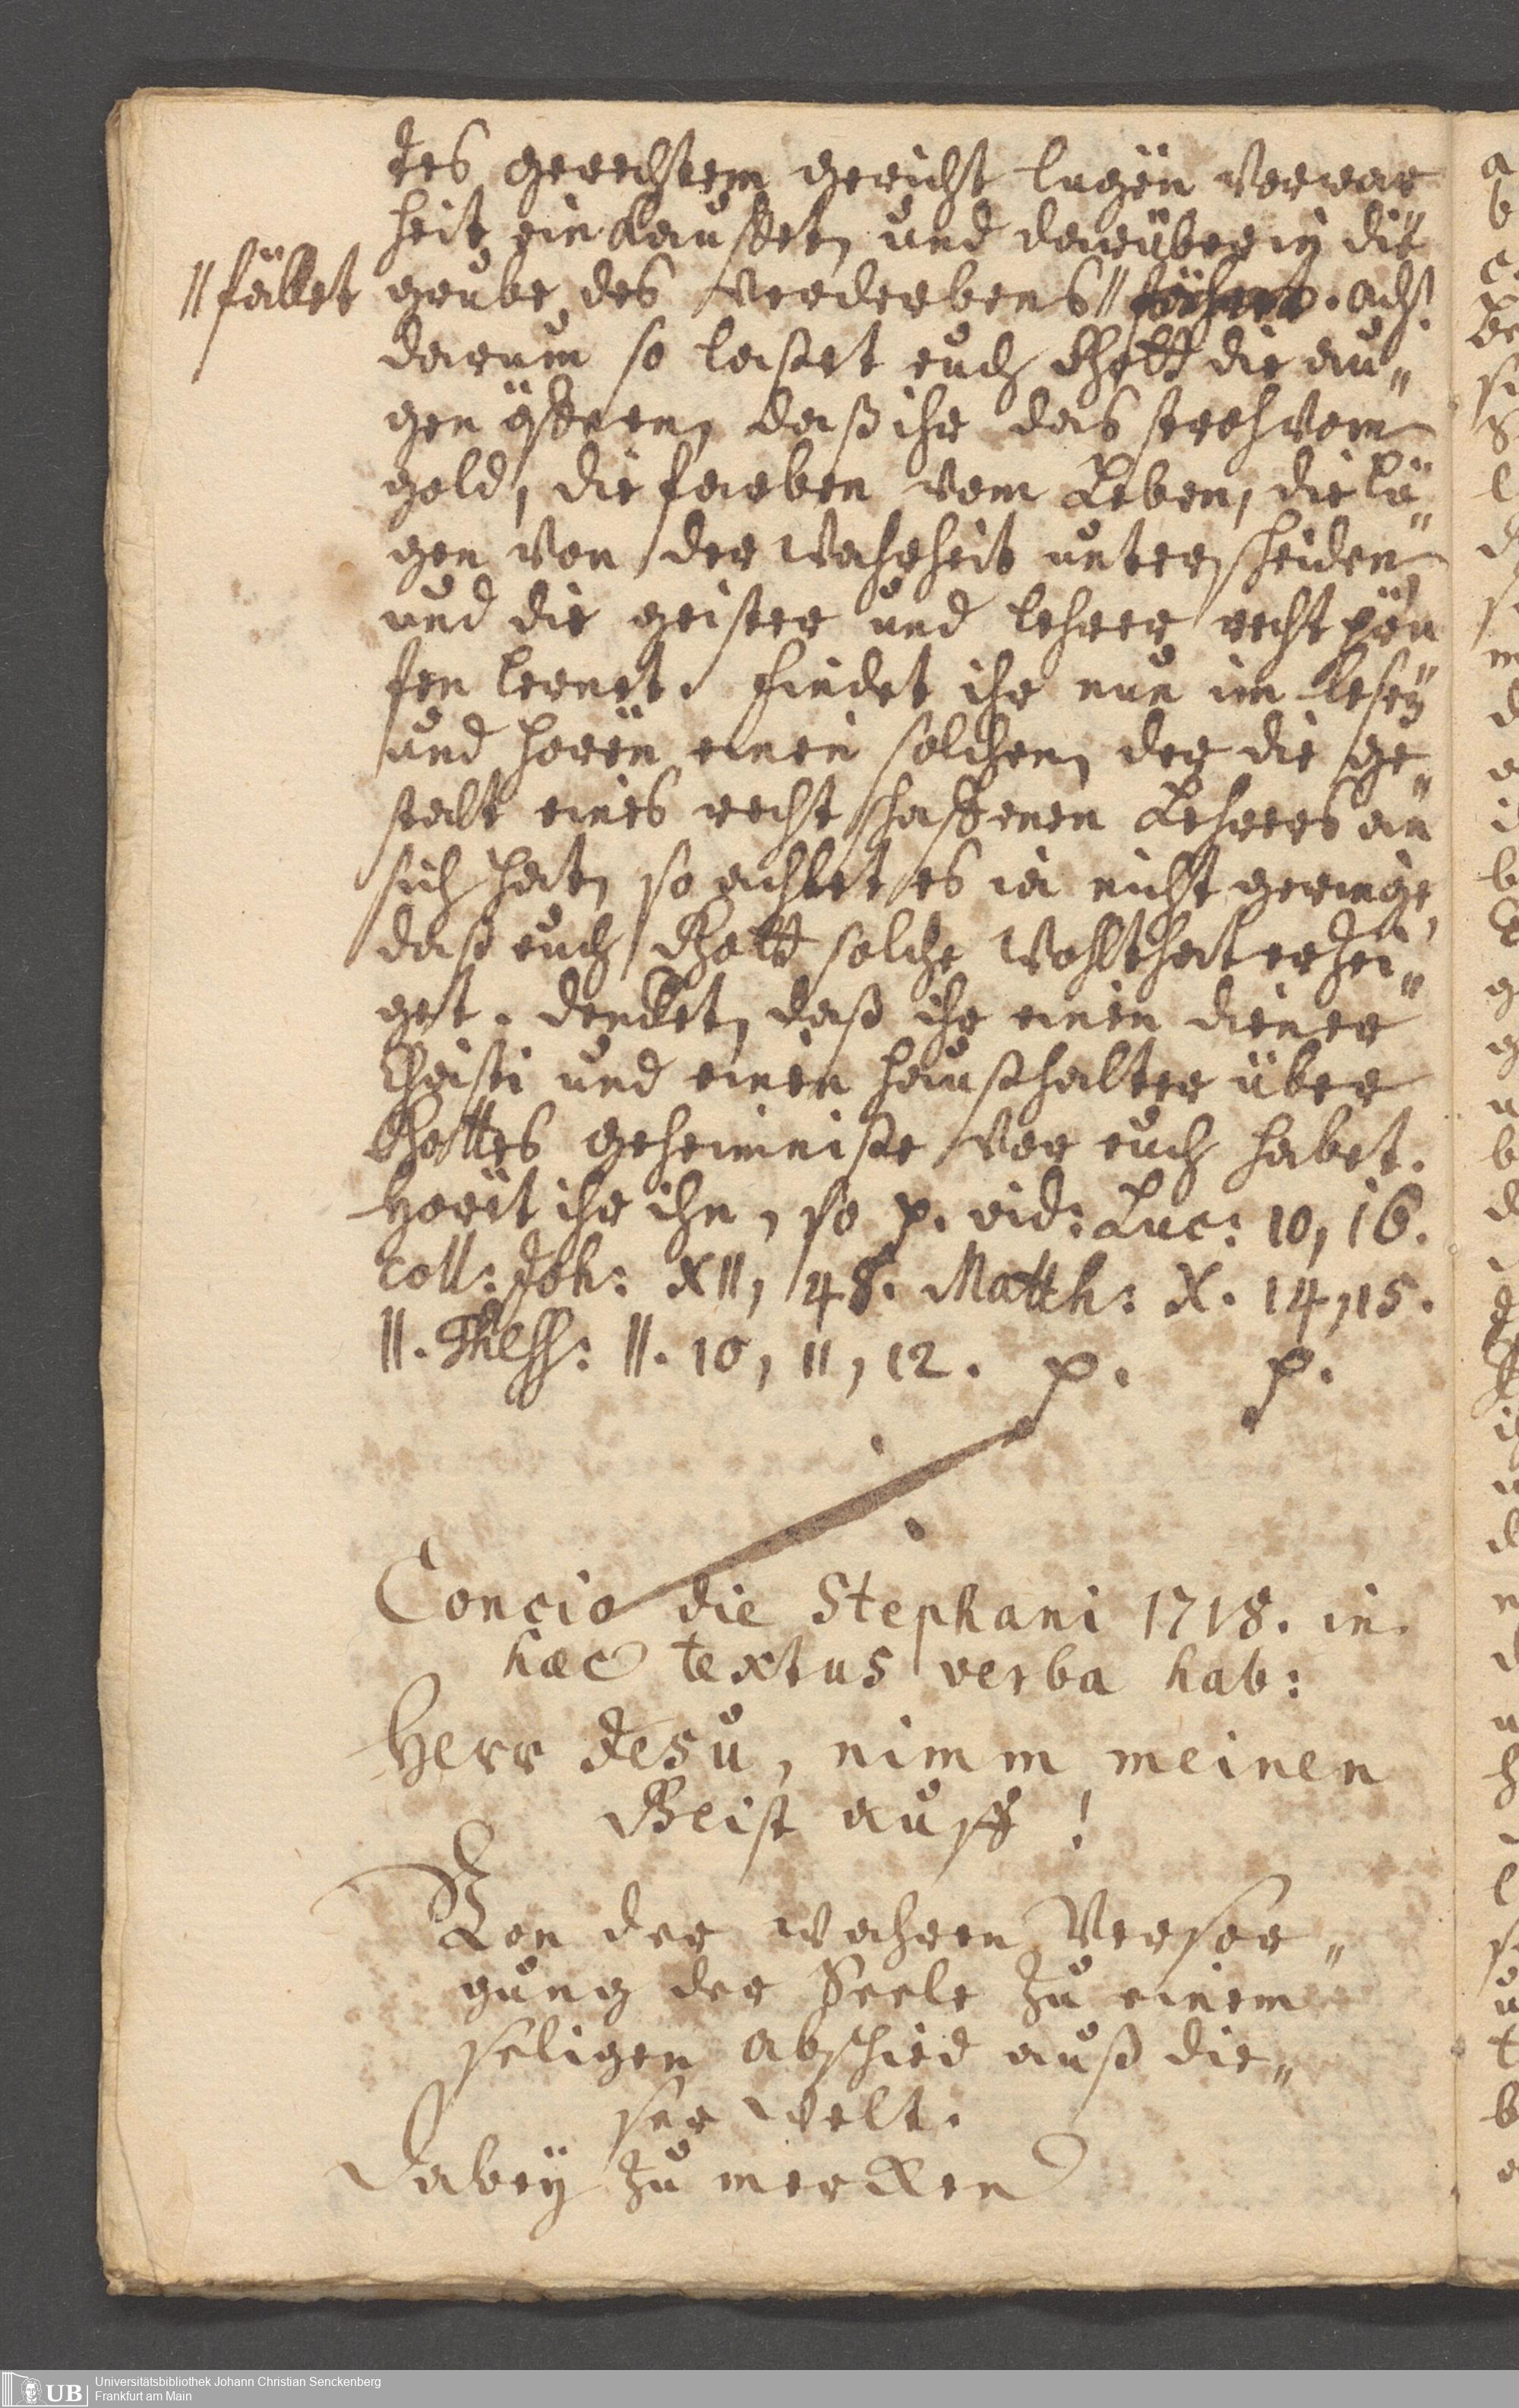 tes gerechtem gericht lugen vor war
heit ein kauffet, und darüber in die
//fället grube des verderbens // . ach!
darum so lasset euch Gott die au„
gen öffnen, daß ihr das stroh vom
gold, die farben vom Leben, die lü„
gen von der wahrheit unterscheiden
und die geister und lehrer recht prü
fen lernet. findet ihr nun im lesen
und hören einen solchen, der die ge„
stalt eines rechtschaffenen Lehrers an
sich hat, so achtet es ia nicht geringe,
daß euch Gott solche Wohlthat erzei„
get. dencket, daß ihr einen diener
Christi und einen haußhalter über
Gottes geheimniße vor euch habet.
Hörit ihr ihn, so p. vid: Luc: 10, 16.
coll: Joh: XII, 48. Matth: X. 14, 15.
II. Thess: II. 10, 11, 12. p. p.
Concio die Stephani 1718. in
hæc textus verba hab:
Herr Jesu, nimm meinen
Geist auff!
Von der wahren Versor„
gung der Seele zu einem
seligen abschied auß die„
ser welt.
Dabey zu mercken
UB Universitätsbibliothek Johann Christian Senckenberg
Frankfurt am Main